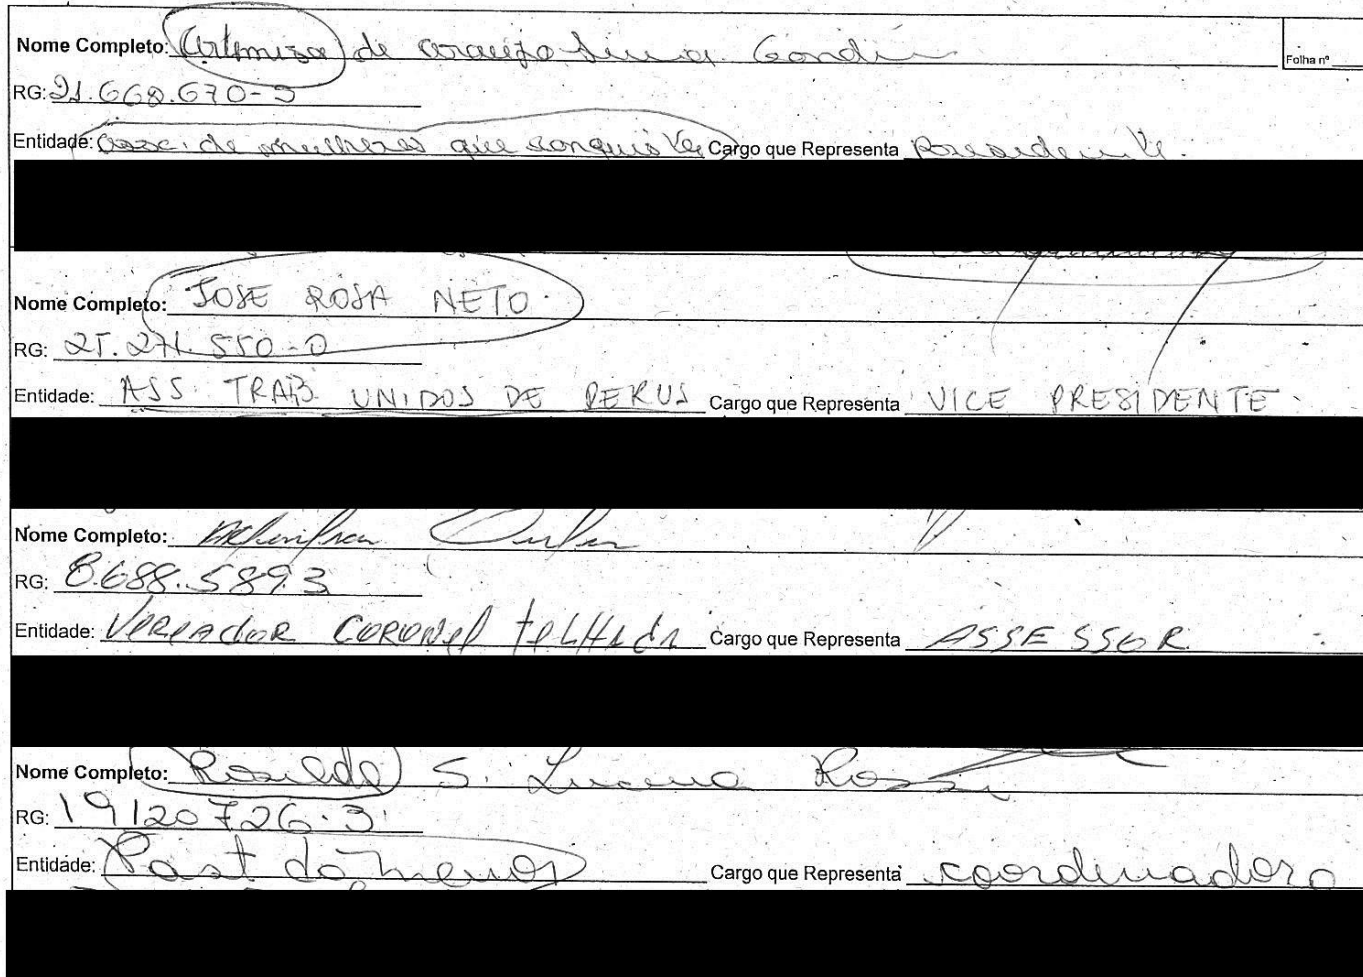 Nome Completo: Artemiza de araujo Lima Gondin
Folha nº
RG: 21.668.670-5
Entidade: assc. de mulheres que conquista Cargo que Representa Presidente.
Nome Completo: JOSE ROSA NETO
RG: 25.271.550-0
Entidade: ASS. TRAB. UNIDOS DE PERUS Cargo que Representa VICE PRESIDENTE
Nome Completo:
RG: 8.688.589.3
Entidade: VEREADOR CORONEL TELHADA Cargo que Representa ASSESSOR
Nome Completo: S. Lucena Rossi
RG: 19120726.3
Entidade: Past do menor Cargo que Representa coordenadora